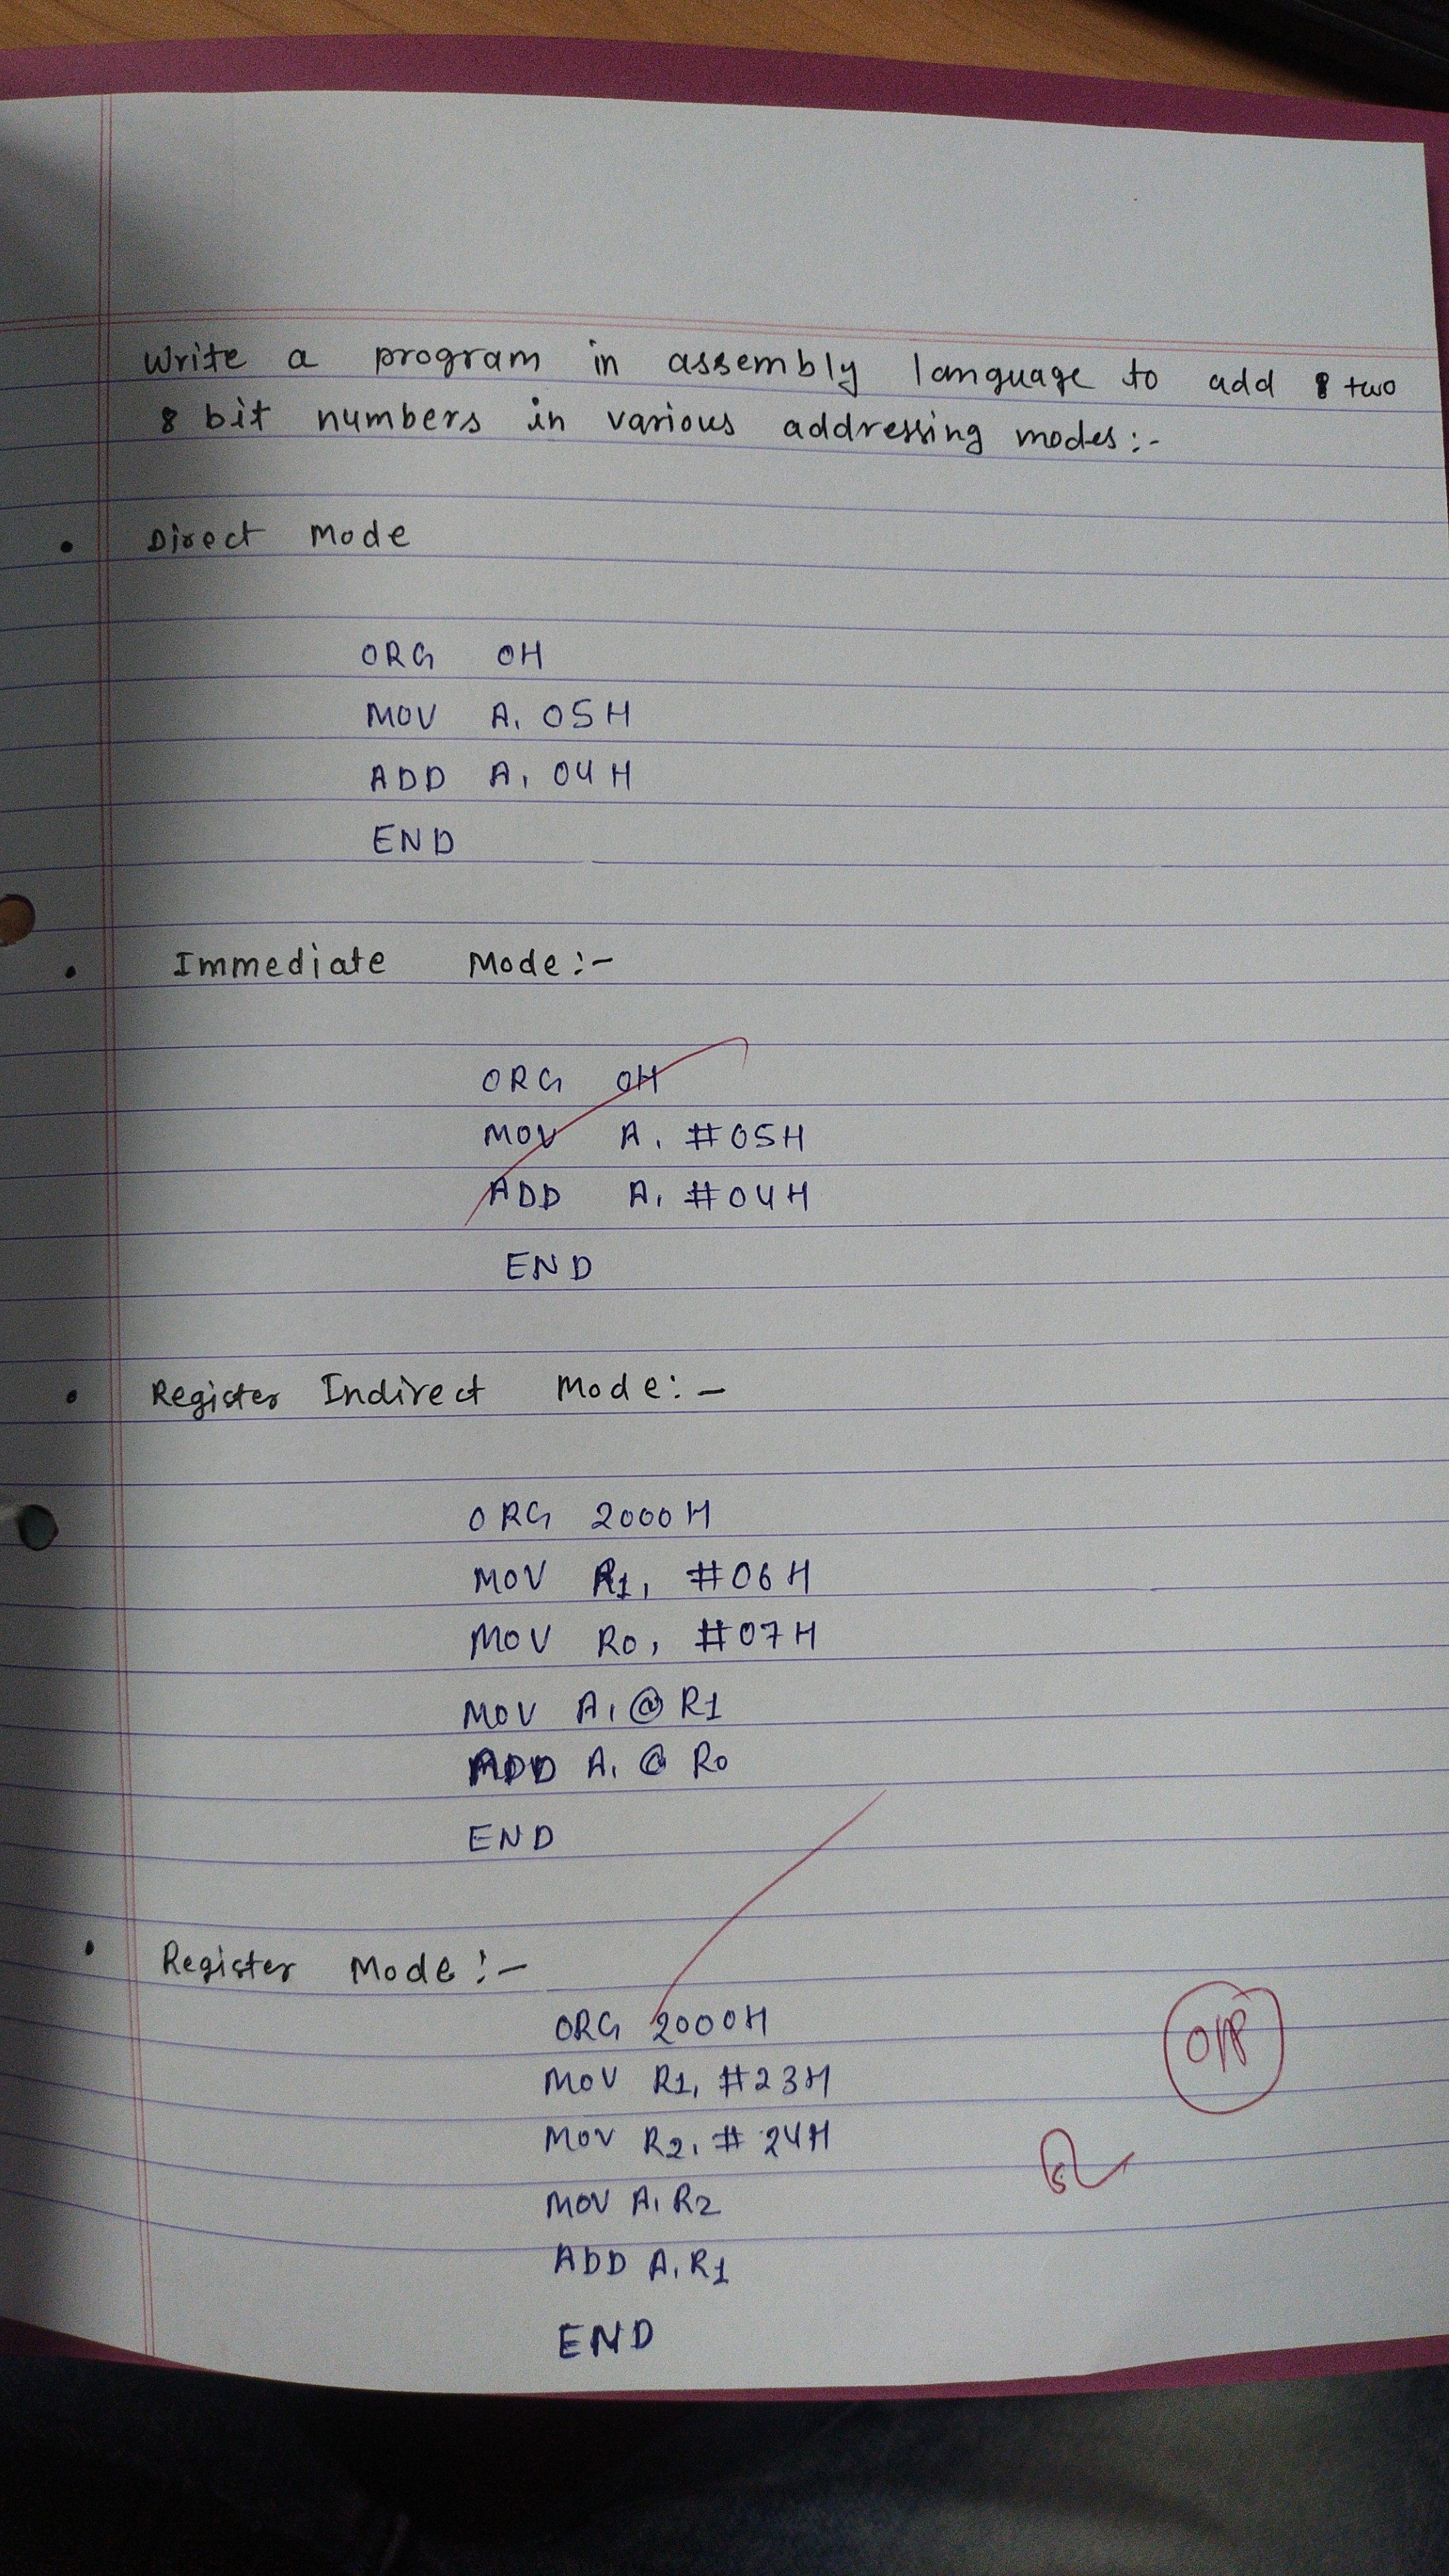 Write a program in assembly language to add two
8 bit numbers in various addressing modes:-
• Direct Mode
ORG 0H
MOV A, 05H
ADD A, 04H
END
• Immediate Mode:-
ORG 0H
MOV A, #05H
ADD A, #04H
END
• Register Indirect Mode:-
ORG 2000H
MOV R1, #06H
MOV R0, #07H
MOV A, @R1
ADD A, @R0
END
• Register Mode:-
ORG 2000H
MOV R1, #23H
MOV R2, #24H
MOV A, R2
ADD A, R1
END
O/P